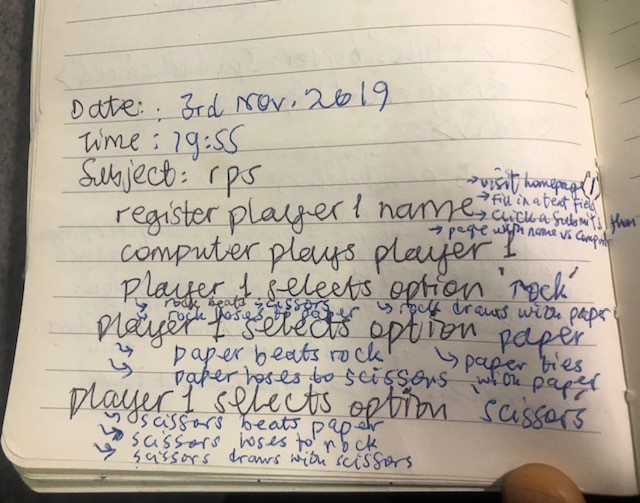 Date: : 3rd Nov. 2019
Time : 19:55
Subject: rps
→ visit homepage (/)
register player 1 name → Fill in a text field
→ Click a Submit & then
→ page with name vs Comput
computer plays player 1
player 1 selects option 'rock'
↳ rock beats scissors
↳ rock loses to paper ↳ rock draws with paper
player 1 selects option paper
↳ paper beats rock ↳ paper ties
↳ paper loses to scissors with paper
player 1 selects option 'scissors'
↳ scissors beats paper
↳ scissors loses to rock
↳ scissors draws with scissors